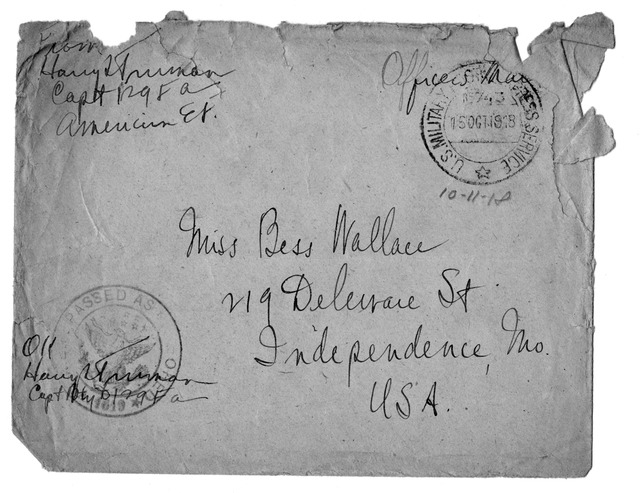 From
Harry S Truman
Capt 129 F a
American E F.
Officers Mail
U.S. MILITARY EXPRESS SERVICE
743
15 OCT 1918
10-11-18
Miss Bess Wallace
219 Deleware St
Independence, Mo.
USA.
PASSED AS
OK
Harry S Truman
Capt Bty D 129 F a